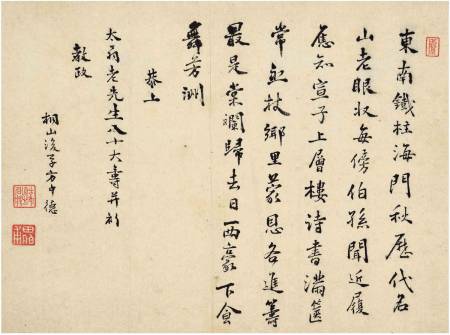 東南鐵柱海門秋歷代名
山老眼収每傍伯孫聞近履
應知宣子上層樓詩書滿篋
常杖鄉里蒙恩各進籌
最是斕歸去日兩下食
舞芳洲
恭上
太翁老先生八十大壽并祈
敎政
桐山後学方中德